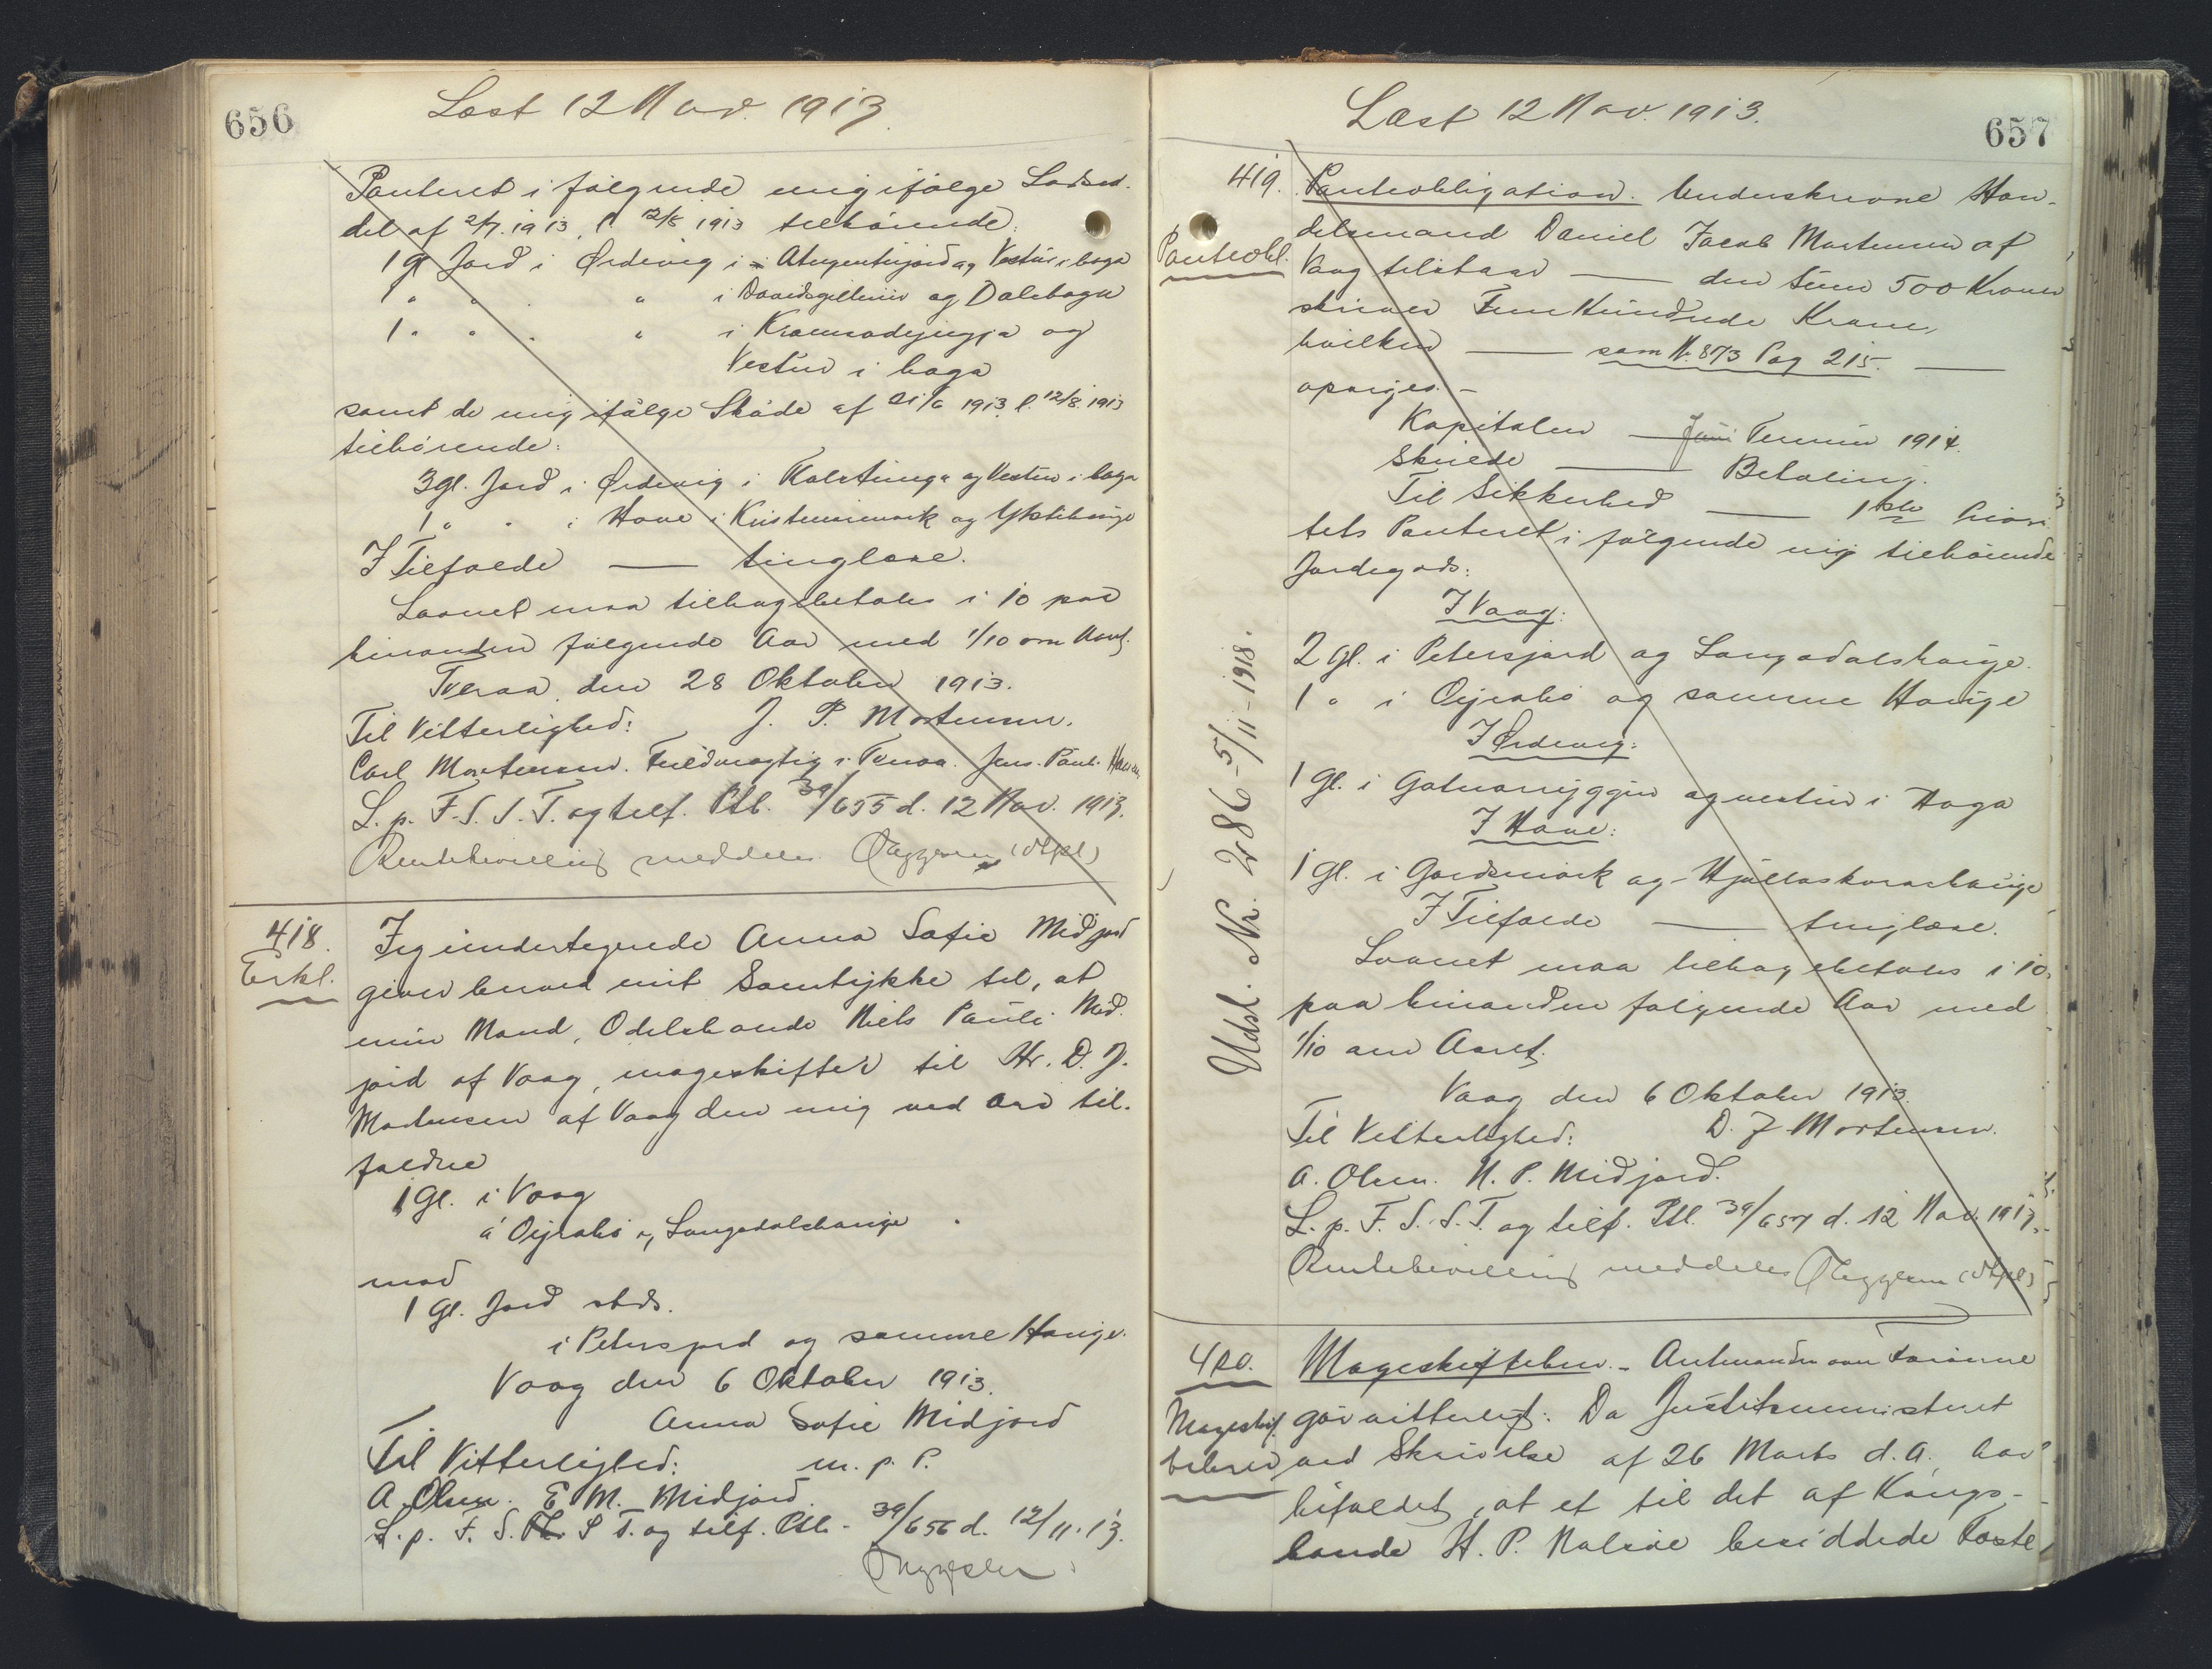 656
Læst 12 Nov. 1913.
Panteret i følgende mig ifølge Lodsed-
del af 2/7. 1913, l. 12/8 1913 tilhørende:
1 gl Jord i Ørdevig i og Vestur i haga
1 " " " i og Dalehagu
1 " " " i og
Vestur i haga
samt de mig ifølge Skøde af 21/6 1913. l. 12/8. 1913
tilhørende:
3 gl. Jord i Ørdevig i og Vestur i haga
1 " " i Hove i Kristensmørk og
I Tilfælde — tinglæse.
Laanet maa tilbagebetales i 10 paa
hinanden følgende Aar med 1/10 om Aaret.
Tveraa den 28 Oktober 1913.
Til Vitterlighed: J. P. Mortensen.
Carl Mortensen. Fuldmægtig i Tveraa. Jens Pauli
L. p. F. S. S. T. og tilf. Ptb. 39/655 d. 12 Nov. 1913.
Rentebevilling meddeles (Stpl)
418.
Erkl.
Jeg undertegnede Anna Sofie Midjord
giver herved mit Samtykke til, at
min Mand, Odelsbonde Niels Pauli Mid-
jord af Vaag, mageskifter til Hr. D. J.
Mortensen af Vaag den mig ved Arv til-
faldne
1 Gl. i Vaag
á Oyrabø og Langadalshauge
mod
1 Gl. Jord stds.
i Petersjord og samme Hauge.
Vaag den 6 Oktober 1913.
Anna Sofie Midjord
Til Vitterlighed: m. p. P.
A. Olsen. E. M. Midjord.
L. p. F. S. S T. og tilf. Ptb. 39/656 d. 12/11. 13.
657
Læst 12 Nov. 1913.
419.
Panteobl.
Panteobligation. Underskrevne Han-
delsmand Daniel Jacob Mortensen af
Vaag tilstaar — den Sum 500 Kroner
skriver Fem Hundrede Kroner,
hvilken — som Nr. 873 Pag 215. —
opsiges. —
Kapitalen — Juni Termin 1914.
Skulde — Betaling.
Til Sikkerhed — 1ste Priori-
tets Panteret i følgende mig tilhørende
Jordegods:
I Vaag:
2 gl. i Petersjord og Langadalshauge.
1 " i Oyrabø og samme Hauge
I Ørdevig:
1 Gl. i og vestur i Haga
I Hove:
1 Gl. i Gardsmørk og
I Tilfælde — tinglæse.
Laanet maa tilbagebetales i 10
paa hinanden følgende Aar med
1/10 om Aaret.
Vaag den 6 Oktober 1913.
Til Vitterlighed: D. J Mortensen.
A. Olsen. N. P. Midjord.
L. p. F. S. S. T. og tilf. Ptb. 39/657 d. 12 Nov. 1913.
Rentebevilling meddeles (Stpl)
Udsl. Nr. 286 - 5/11 - 1918.
420.
Mageskif-
tebrev
Mageskiftebrev. - Amtmanden over Færøerne
gør vitterligt: Da Justitsministeriet
ved Skrivelse af 26 Marts d. A. har
bifaldet, at et til det af Kongs-
bonde H. P. Nolsøe besiddede Fæste